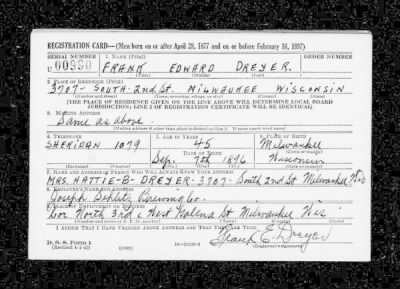 REGISTRATION CARD—(Men born on or after April 28, 1877 and on or before February 16, 1897)
SERIAL NUMBER 1. NAME (Print) ORDER NUMBER
U 00950 FRANK EDWARD DREYER.
(First) (Middle) (Last)
2. PLACE OF RESIDENCE (Print)
3707 - SOUTH - 2nd St. MILWAUKEE WISCONSIN
(Number and street) (Town, township, village, or city) (County) (State)
[THE PLACE OF RESIDENCE GIVEN ON THE LINE ABOVE WILL DETERMINE LOCAL BOARD
JURISDICTION; LINE 2 OF REGISTRATION CERTIFICATE WILL BE IDENTICAL]
3. MAILING ADDRESS
Same as above.
[Mailing address if other than place indicated on line 2. If same insert word same]
4. TELEPHONE 5. AGE IN YEARS 6. PLACE OF BIRTH
SHERIDAN 1079 45 Milwaukee
DATE OF BIRTH (Town or county)
Sep. 7th 1896 Wisconsin
(Exchange) (Number) (Mo.) (Day) (Yr.) (State or country)
7. NAME AND ADDRESS OF PERSON WHO WILL ALWAYS KNOW YOUR ADDRESS
MRS. HATTIE-B- DREYER-3707- South 2nd St Milwaukee Wis
8. EMPLOYER'S NAME AND ADDRESS
Joseph Schlitz Brewing Co.
9. PLACE OF EMPLOYMENT OR BUSINESS
Cor North 3rd & West Galena St Milwaukee Wis
(Number and street or R. F. D. number) (Town) (County) (State)
I AFFIRM THAT I HAVE VERIFIED ABOVE ANSWERS AND THAT THEY ARE TRUE.
D. S. S. Form 1 Frank E. Dreyer
(Revised 4-1-42) (over) (Registrant's signature)